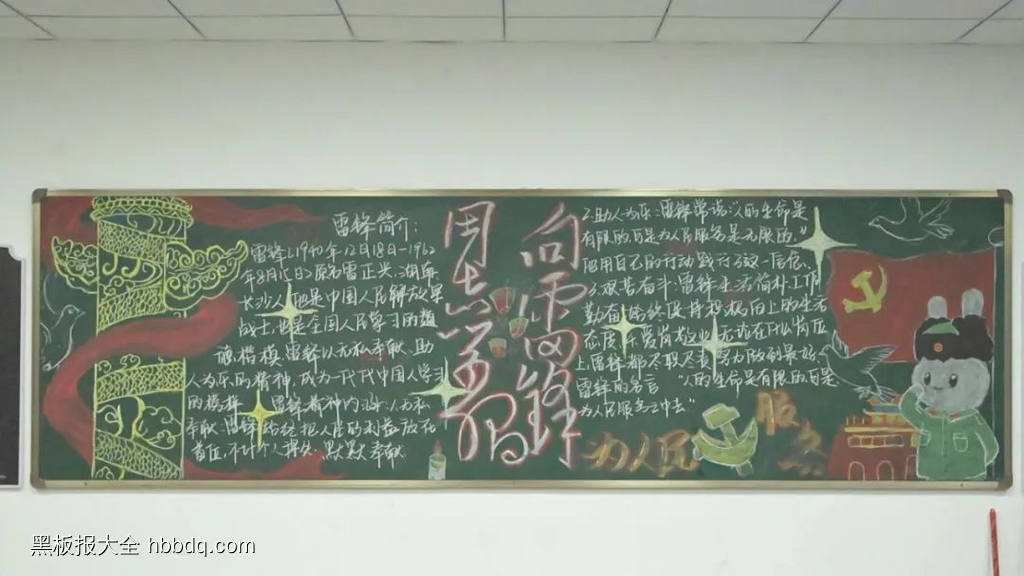 雷锋简介:
雷锋(1940年12月18日-1962
年8月15日)原名雷正兴,湖南
长沙人,他是中国人民解放军
战士,也是全国人民学习的道
德楷模,雷锋以无私奉献、助
人为乐的精神,成为一代代中国人学习
的榜样。雷锋精神内涵:1.无私
奉献:雷锋始终把人民的利益放在
首位,不计个人得失,默默奉献
向雷锋
同志学习
2.助人为乐:雷锋常说:"人的生命是
有限的,可是为人民服务是无限的。"
他用自己的行动践行了这一信念
3.艰苦奋斗:雷锋生活简朴工作
勤奋,始终保持积极向上的生活
态度
上,雷锋都尽职尽责,努力做到最好
雷锋的名言 "人的生命是有限的,可是
为人民服务
为人民服务
黑板报大全 hbbdq.com